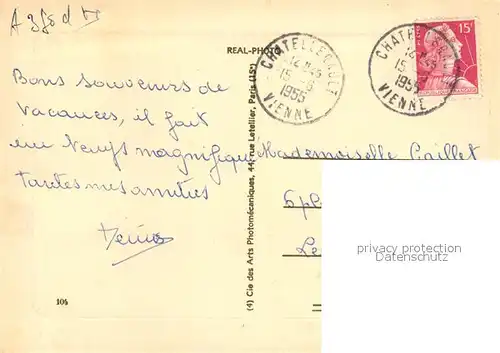 REAL-PHOTO
CHATELLERAULT
12 H 45
15
1955
VIENNE
CHATELLERAULT
12 H 45
15
1955
VIENNE
15F
Bons souvenirs de
vacances, il fait
un temps magnifique
toutes mes amitiés
Denise
Mademoiselle Caillet
(4) Cie des Arts Photomécaniques, 44, rue Letellier, Paris (15e)
104
privacy protection
Datenschutz